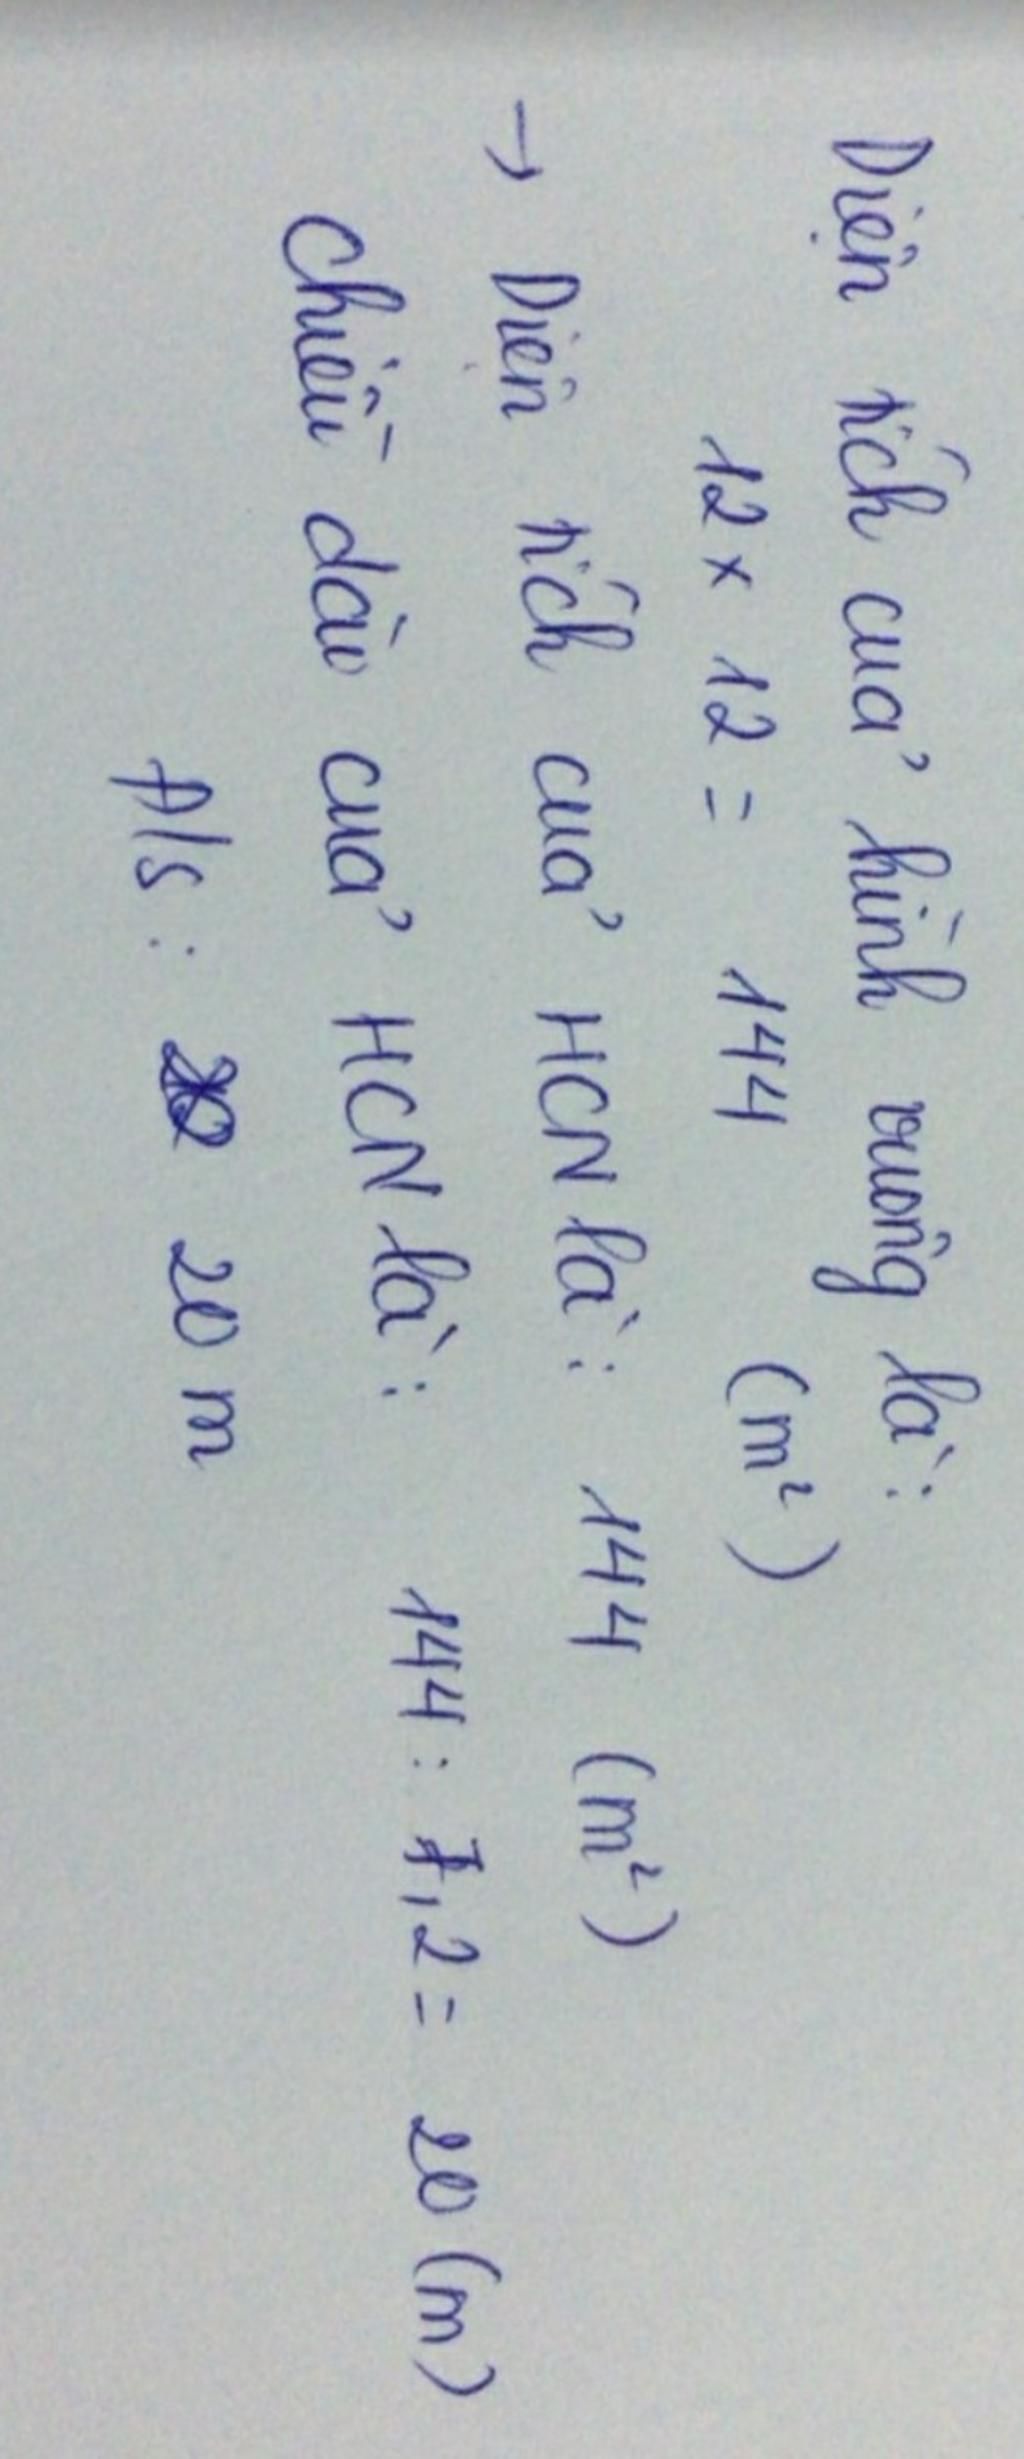 Diện tích của hình vuông là:
12 x 12 = 144 (m²)
→ Diện tích của HCN là: 144 (m²)
Chiều dài của HCN là: 144 : 7,2 = 20 (m)
Đ/s: 20 m